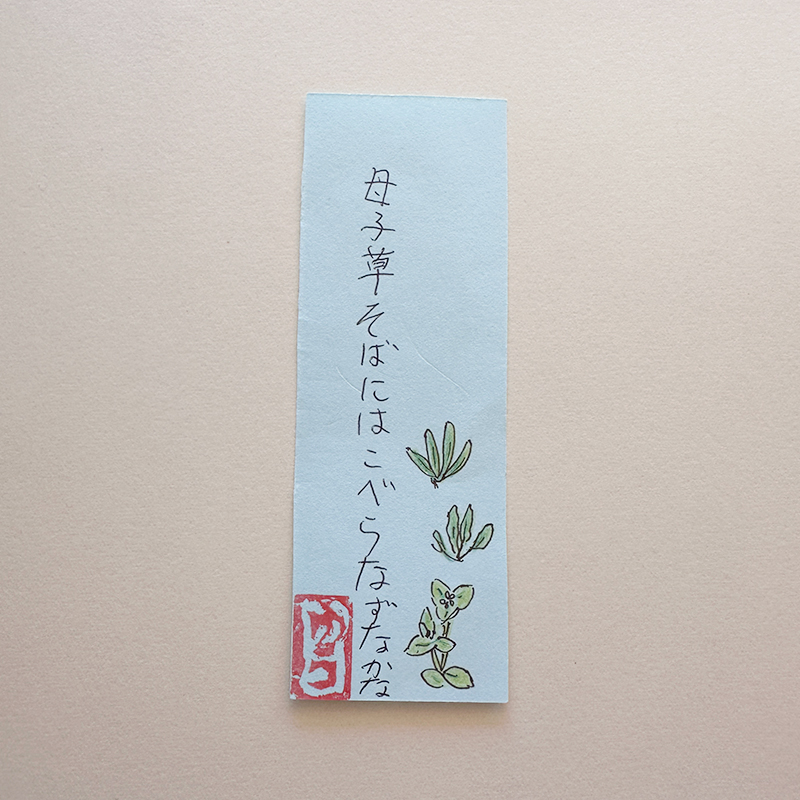 母子草そばにはこべらなずなかな